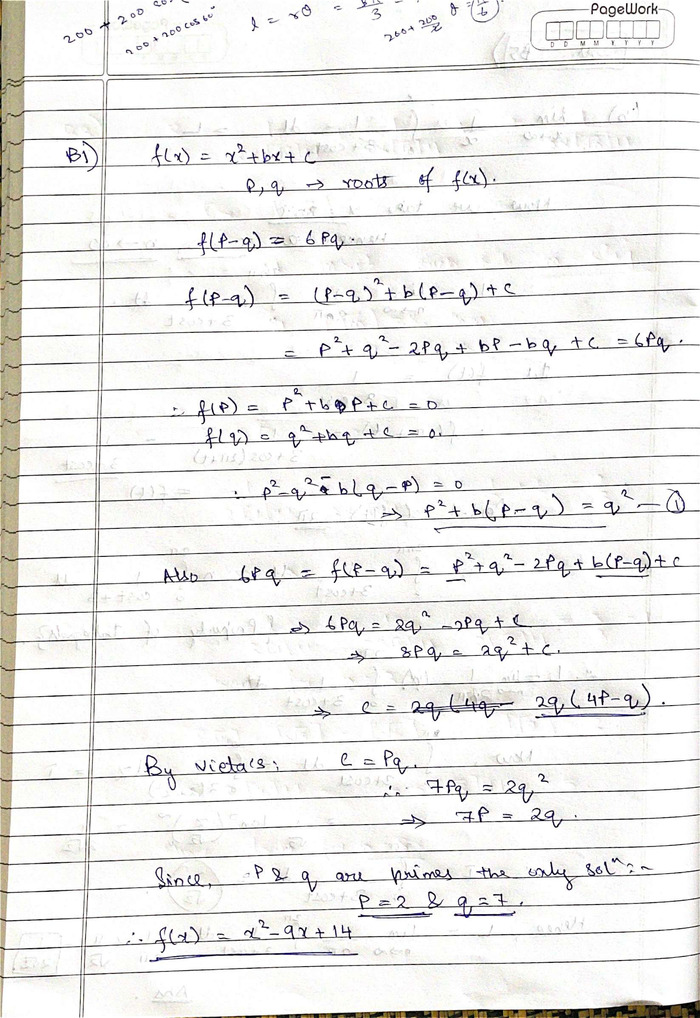 200 + 200 cos
200+200cos60°
l = rθ =
200+ 200/2
PageWork
D D M M Y Y Y Y
B1) f(x) = x²+bx+c
P, q → roots of f(x).
f(P-q) = 6Pq.
f(P-q) = (P-q)²+b(P-q)+c
= P²+q²-2Pq+bP-bq+c = 6Pq.
∴ f(P) = P²+bP+c = 0
f(q) = q²+bq+c = 0.
∴ P²-q²-b(q-P) = 0
⇒ P²+b(P-q) = q² — ①
Also 6Pq = f(P-q) = P²+q²-2Pq+b(P-q)+c
⇒ 6Pq = 2q²-2Pq+c
⇒ 8Pq = 2q²+c.
⇒ c = 2q(4q- 2q(4P-q).
By vieta's: c = Pq.
∴ 7Pq = 2q²
⇒ 7P = 2q.
Since, P & q are primes the only solⁿ:-
P=2 & q=7.
∴ f(x) = x²-9x+14